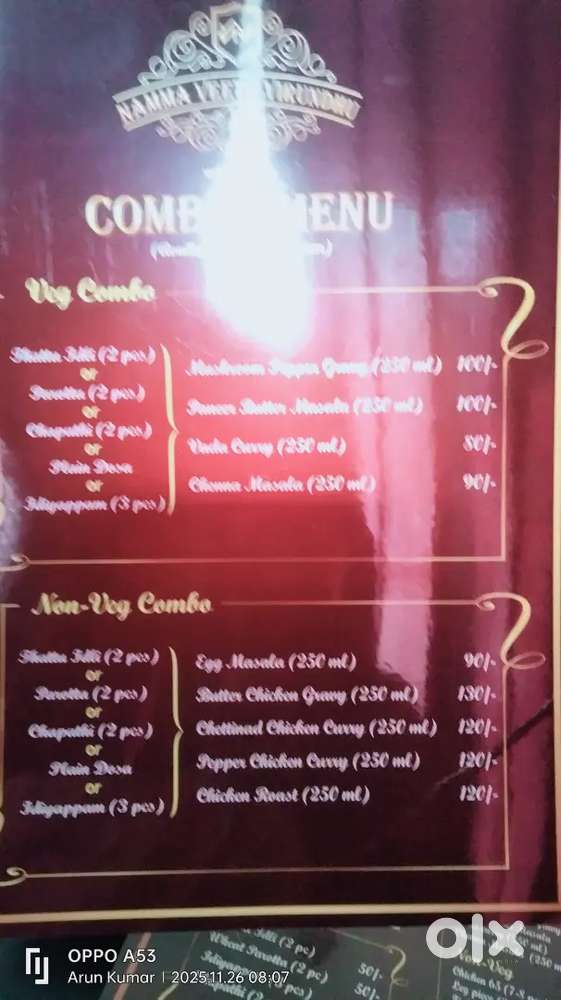 NAMMA VEETU VIRUNDHU
MENU
Veg Combo
Thattu Idli (2 pcs)
or
Parotta (2 pcs)
or
Chapathi (2 pcs)
or
Plain Dosa
or
Idiyappam (3 pcs)
Mushroom Pepper Gravy (250 ml) 100/-
Paneer Butter Masala (250 ml) 100/-
Vada Curry (250 ml) 80/-
Channa Masala (250 ml) 90/-
Non-Veg Combo
Thattu Idli (2 pcs)
or
Parotta (2 pcs)
or
Chapathi (2 pcs)
or
Plain Dosa
or
Idiyappam (3 pcs)
Egg Masala (250 ml) 90/-
Butter Chicken Gravy (250 ml) 130/-
Chettinad Chicken Curry (250 ml) 120/-
Pepper Chicken Curry (250 ml) 120/-
Chicken Roast (250 ml) 120/-
Idli (2 pc)
Wheat Parotta (2 pc)
50/-
50/-
Non-Veg
Chicken 65
olx
OPPO A53
Arun Kumar | 2025.11.26 08:07